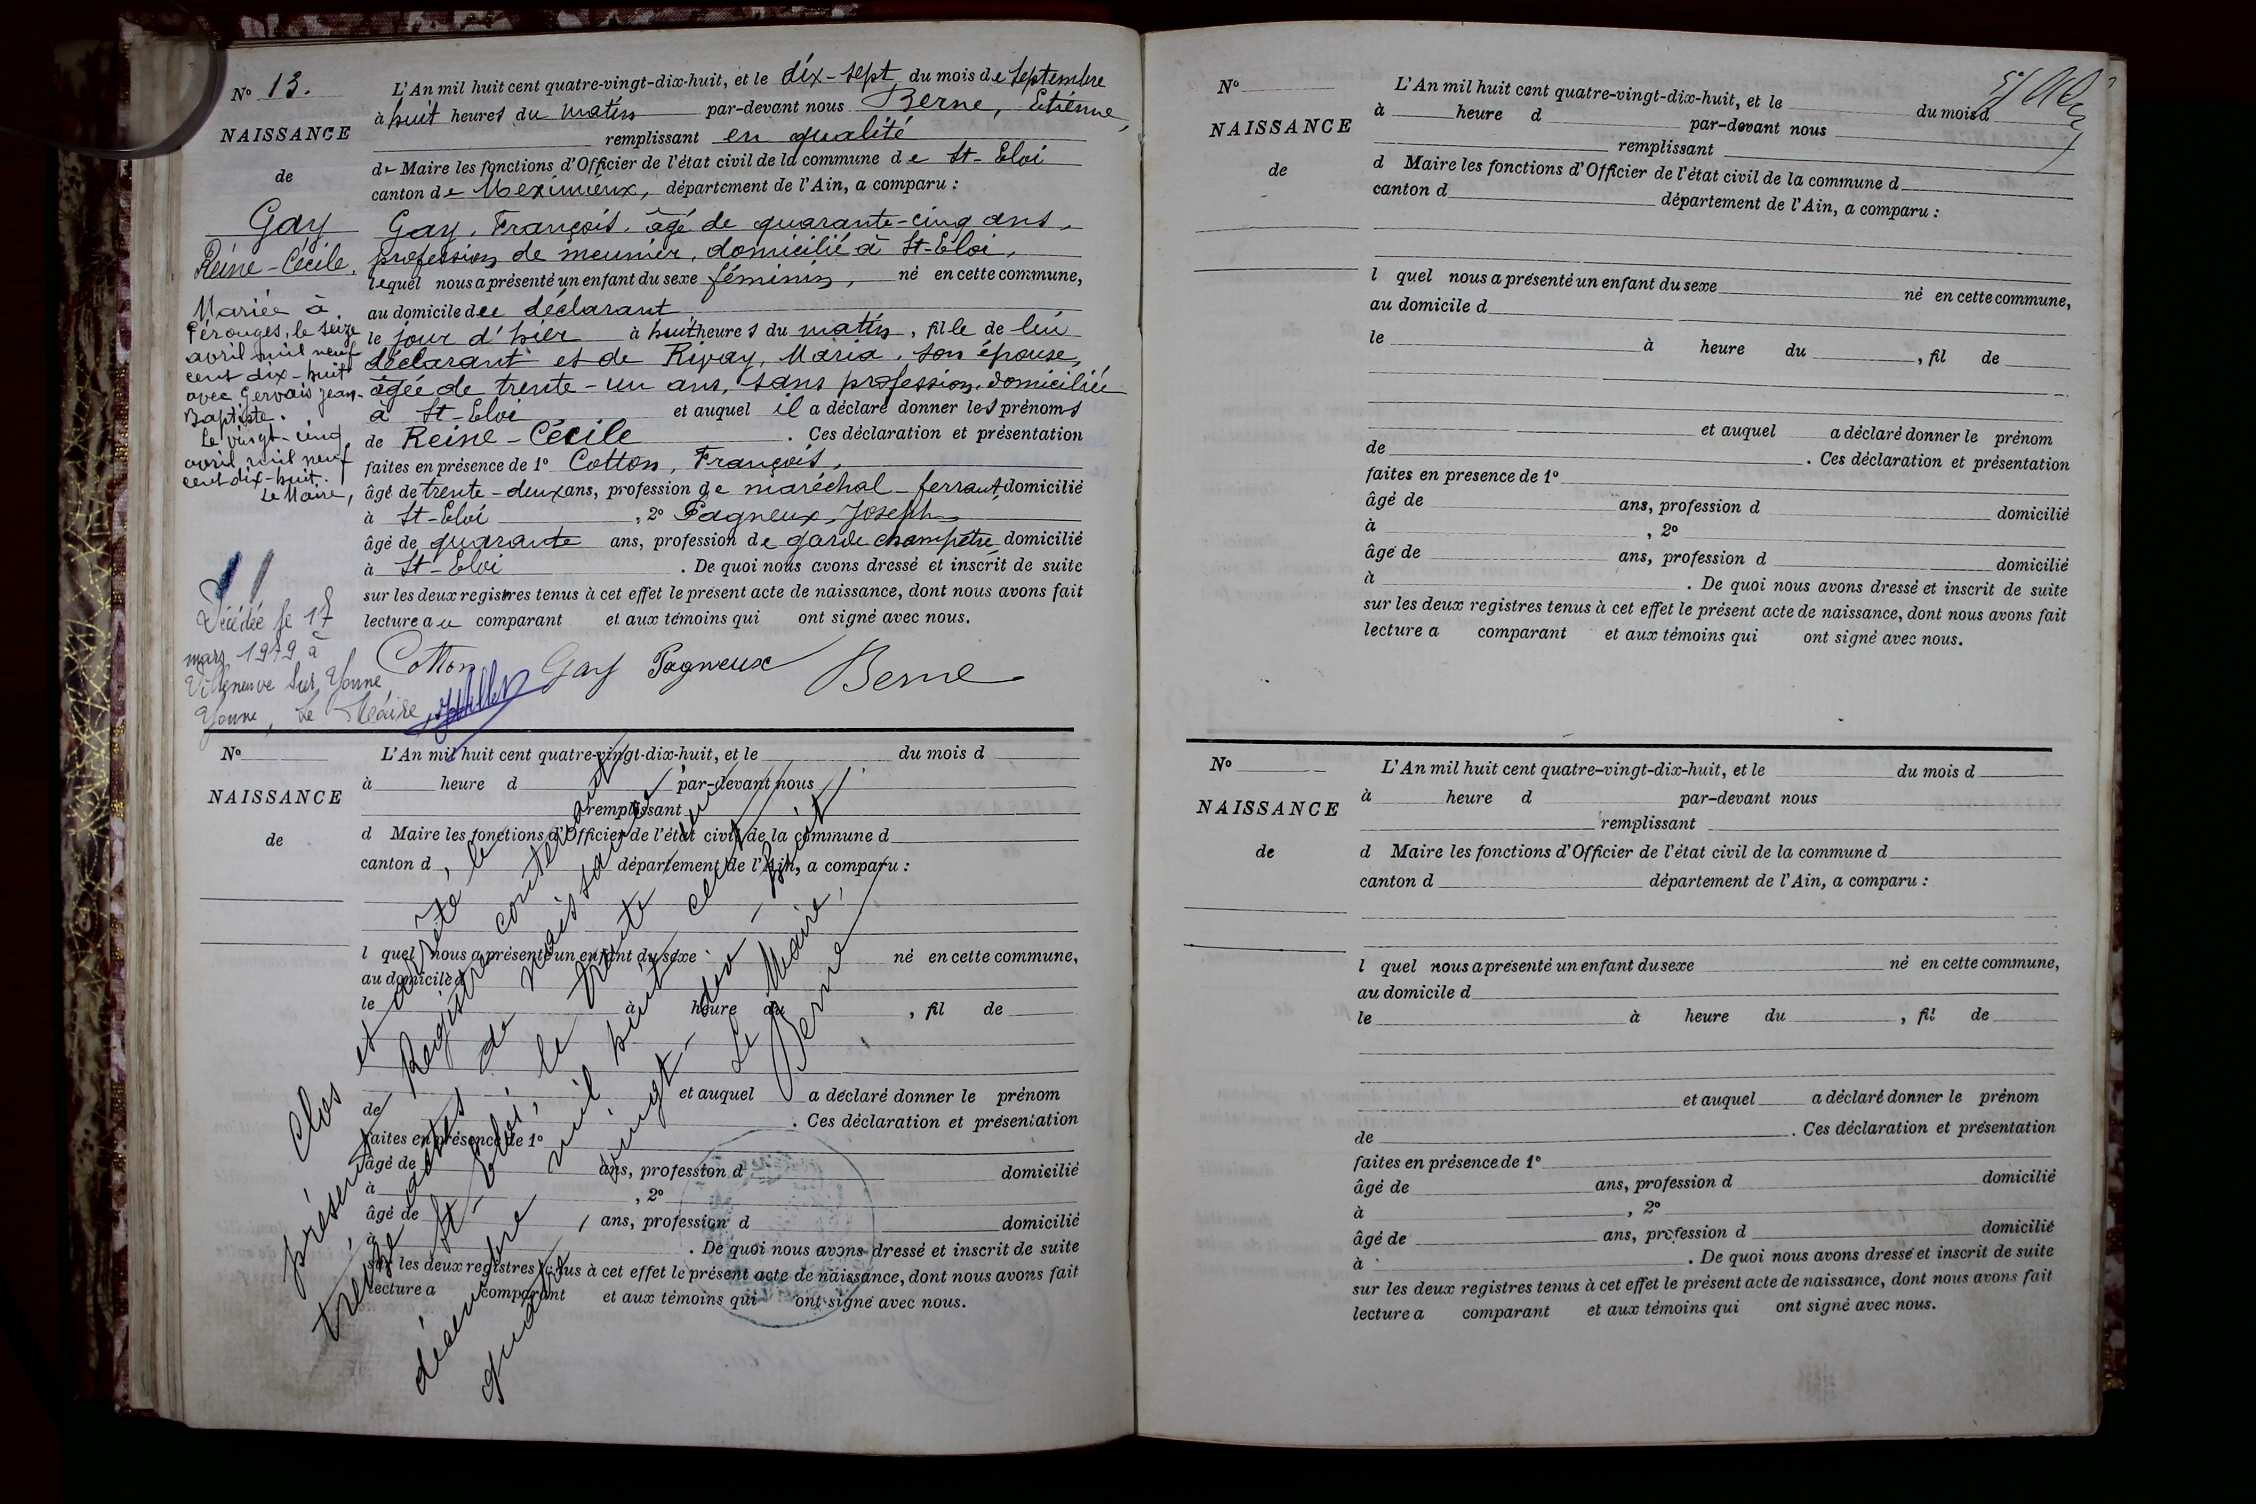 N° 13.
NAISSANCE
de
Gay
Reine-Cécile.
Mariée à
Pérouges, le seize
avril mil neuf
cent dix-huit
avec Gervais Jean-
Baptiste.
Le vingt-cinq
avril mil neuf
cent dix-huit.
Le Maire,
Décédée le 17
mars 1979 à
Villeneuve sur Yonne
Yonne, Le Maire
L'An mil huit cent quatre-vingt-dix-huit, et le dix-sept du mois de septembre
à huit heures du matin par-devant nous Berne, Etienne,
remplissant en qualité
de Maire les fonctions d'Officier de l'état civil de la commune de St-Eloi
canton de Meximieux, département de l'Ain, a comparu :
Gay, François, âgé de quarante-cinq ans,
profession de meunier, domicilié à St-Eloi,
lequel nous a présenté un enfant du sexe féminin, né en cette commune,
au domicile du déclarant
le jour d'hier à huit heures du matin, fille de lui
déclarant et de Rivay, Maria, son épouse,
âgée de trente-un ans, sans profession, domiciliée
à St-Eloi et auquel il a déclaré donner les prénoms
de Reine-Cécile. Ces déclaration et présentation
faites en présence de 1° Cotton, François,
âgé de trente-deux ans, profession de maréchal-ferrant domicilié
à St-Eloi, 2° Pagneux, Joseph
âgé de quarante ans, profession de garde champêtre domicilié
à St-Eloi. De quoi nous avons dressé et inscrit de suite
sur les deux registres tenus à cet effet le présent acte de naissance, dont nous avons fait
lecture au comparant et aux témoins qui ont signé avec nous.
Cotton Gay Pagneux Berne
N°
NAISSANCE
de
L'An mil huit cent quatre-vingt-dix-huit, et le du mois d
à heure d par-devant nous
remplissant
d Maire les fonctions d'Officier de l'état civil de la commune d
canton d département de l'Ain, a comparu :
l quel nous a présenté un enfant du sexe né en cette commune,
au domicile d
le à heure du , fil de
et auquel a déclaré donner le prénom
de . Ces déclaration et présentation
faites en présence de 1°
âgé de ans, profession d domicilié
à , 2°
âgé de ans, profession d domicilié
à . De quoi nous avons dressé et inscrit de suite
sur les deux registres tenus à cet effet le présent acte de naissance, dont nous avons fait
lecture a comparant et aux témoins qui ont signé avec nous.
Clos et arrêté, le
présent Registre contenant
treize actes de naissance
à St-Eloi, le trente un
décembre mil huit cent
quatre-vingt-dix-huit
Le Maire,
Berne
N°
NAISSANCE
de
L'An mil huit cent quatre-vingt-dix-huit, et le du mois d
à heure d par-devant nous
remplissant
d Maire les fonctions d'Officier de l'état civil de la commune d
canton d département de l'Ain, a comparu :
l quel nous a présenté un enfant du sexe né en cette commune,
au domicile d
le à heure du , fil de
et auquel a déclaré donner le prénom
de . Ces déclaration et présentation
faites en presence de 1°
âgé de ans, profession d domicilié
à , 2°
âgé de ans, profession d domicilié
à . De quoi nous avons dressé et inscrit de suite
sur les deux registres tenus à cet effet le présent acte de naissance, dont nous avons fait
lecture a comparant et aux témoins qui ont signé avec nous.
N°
NAISSANCE
de
L'An mil huit cent quatre-vingt-dix-huit, et le du mois d
à heure d par-devant nous
remplissant
d Maire les fonctions d'Officier de l'état civil de la commune d
canton d département de l'Ain, a comparu :
l quel nous a présenté un enfant du sexe né en cette commune,
au domicile d
le à heure du , fil de
et auquel a déclaré donner le prénom
de . Ces déclaration et présentation
faites en présence de 1°
âgé de ans, profession d domicilié
à , 2°
âgé de ans, profession d domicilié
à . De quoi nous avons dressé et inscrit de suite
sur les deux registres tenus à cet effet le présent acte de naissance, dont nous avons fait
lecture a comparant et aux témoins qui ont signé avec nous.